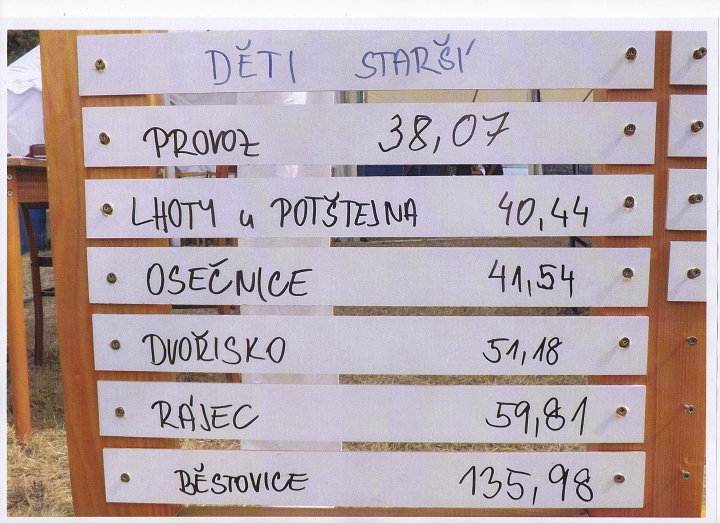 DĚTI STARŠÍ
PROVOZ 38,07
LHOTY u POTŠTEJNA 40,44
OSEČNICE 41,54
DVOŘISKO 51,18
RÁJEC 59,81
BĚSTOVICE 135,98